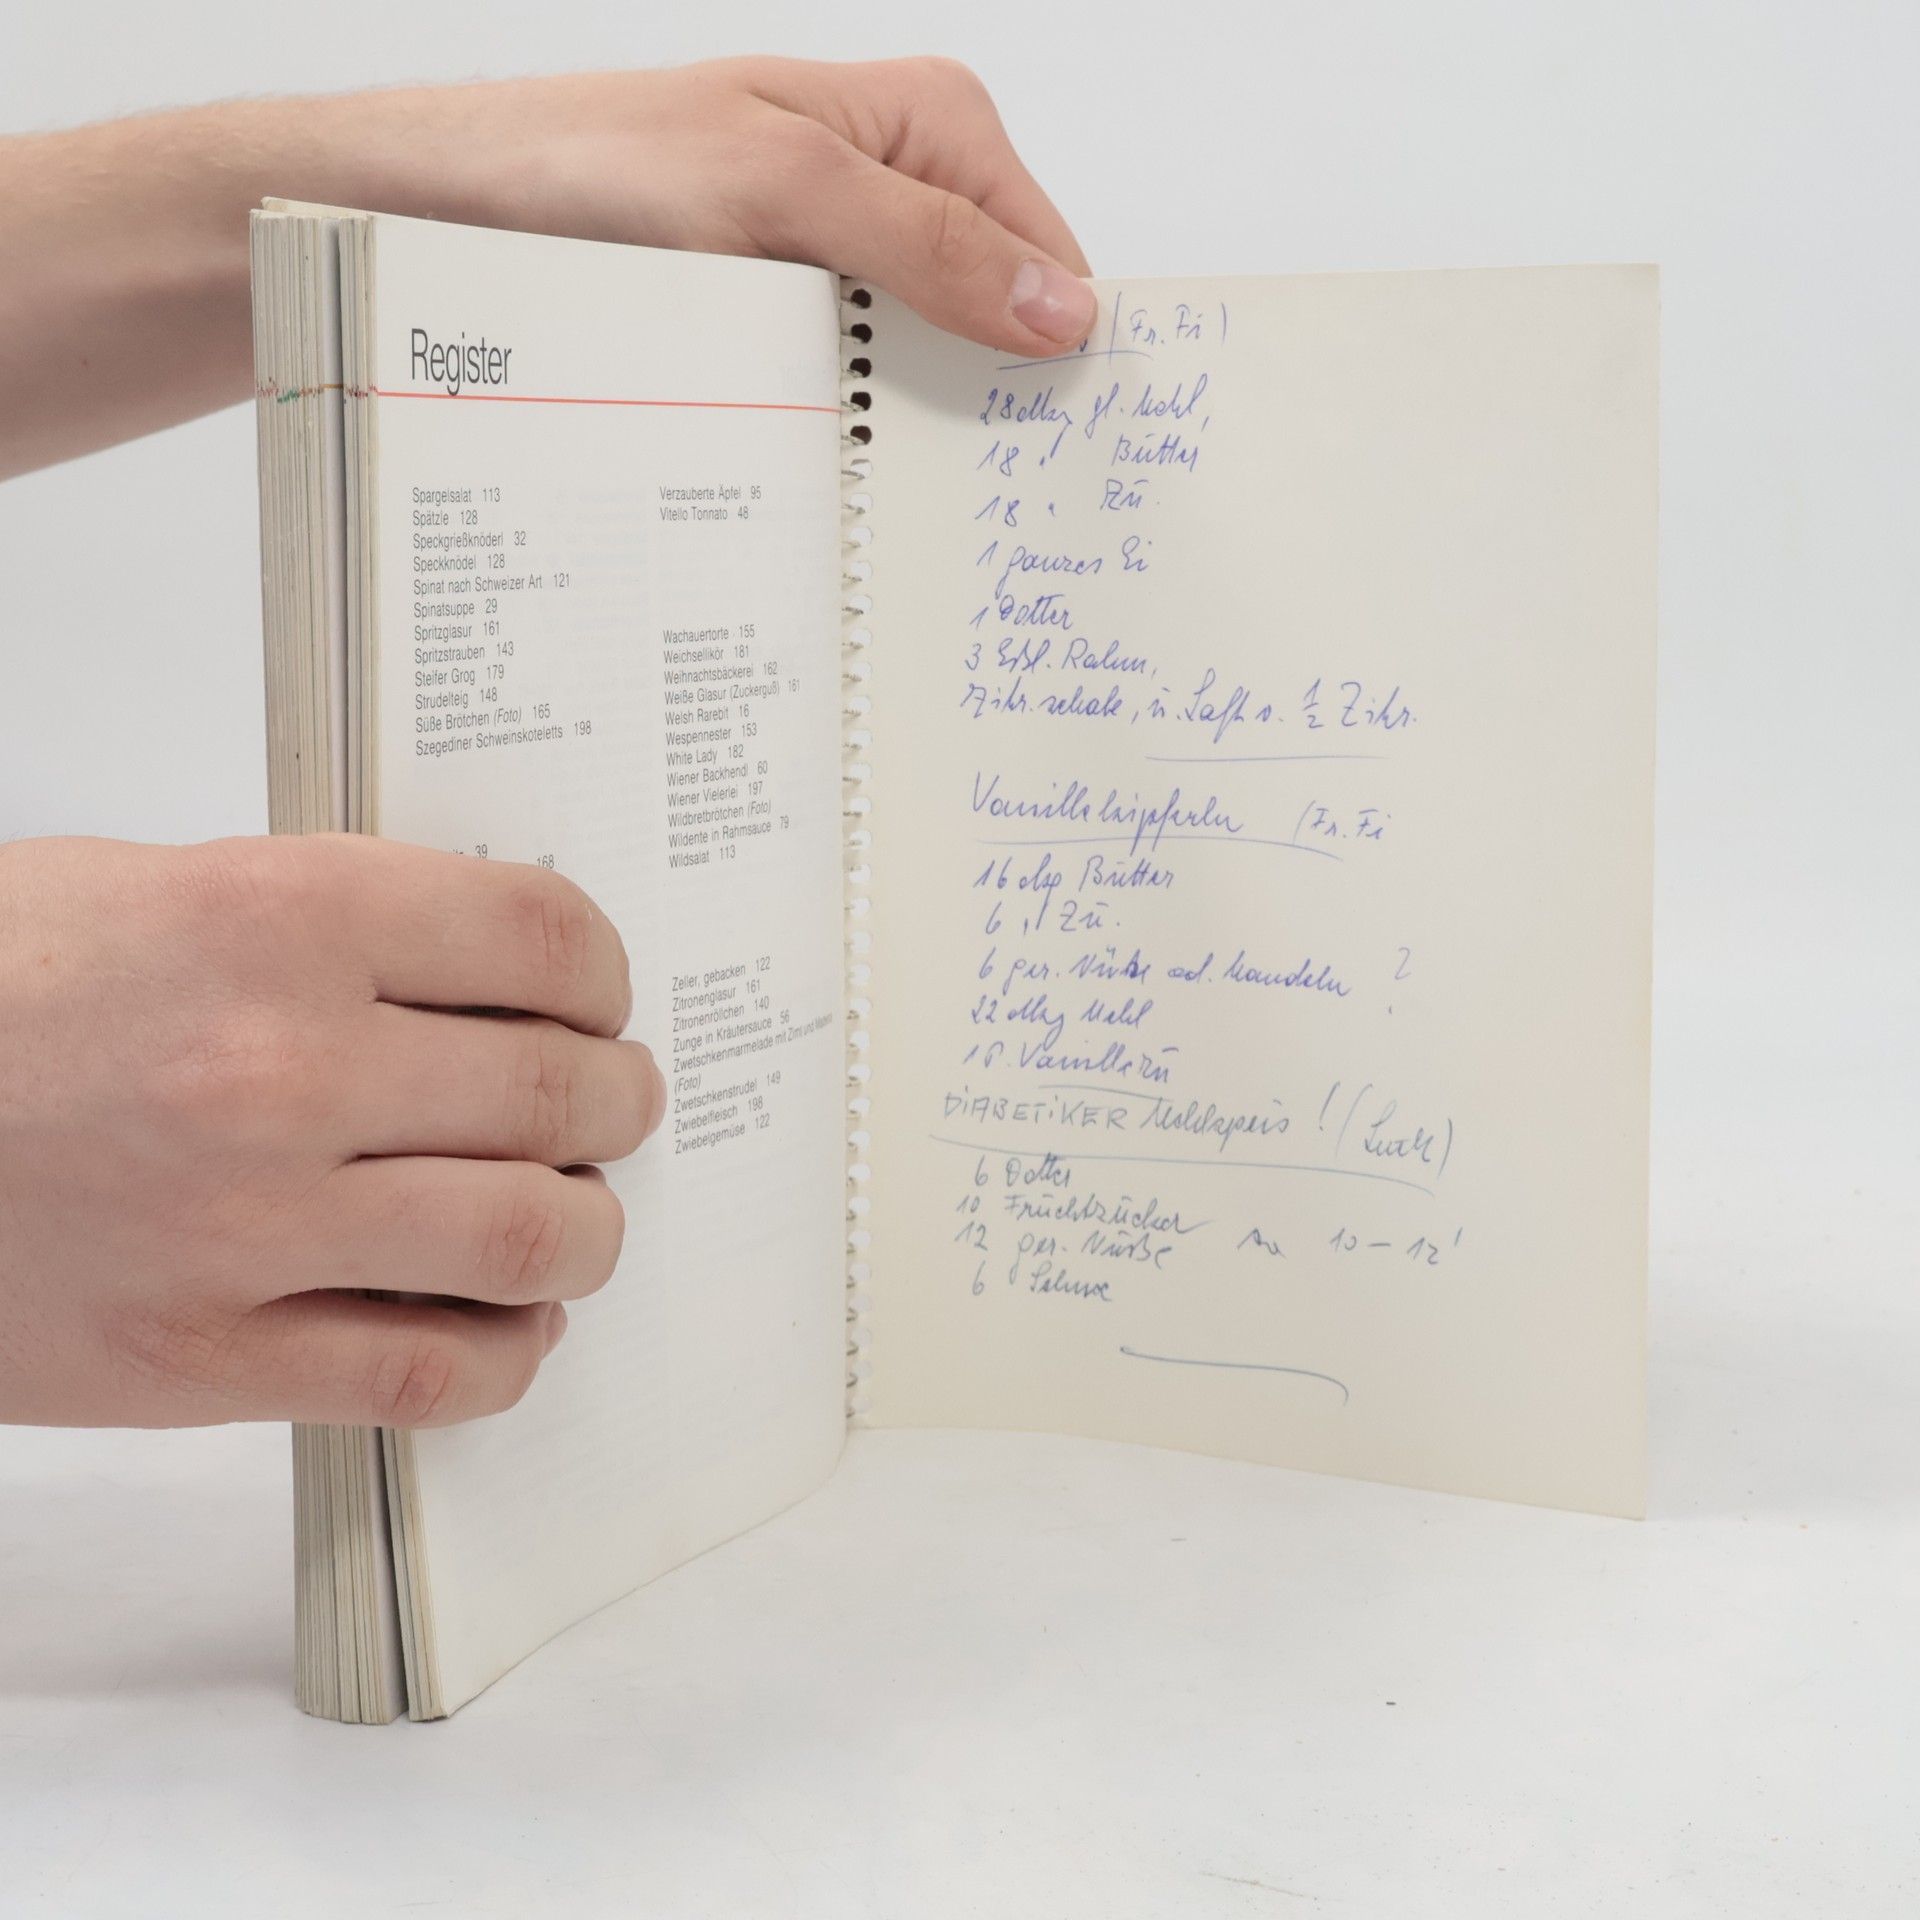 Register
Spargelsalat 113
Spätzle 128
Speckgrießknöderl 32
Speckknödel 128
Spinat nach Schweizer Art 121
Spinatsuppe 29
Spritzglasur 161
Spritzstrauben 143
Steifer Grog 179
Strudelteig 148
Süße Brötchen (Foto) 165
Szegediner Schweinskoteletts 198
39
168
Verzauberte Äpfel 95
Vitello Tonnato 48
Wachauertorte 155
Weichsellikör 181
Weihnachtsbäckerei 162
Weiße Glasur (Zuckerguß) 161
Welsh Rarebit 16
Wespennester 153
White Lady 182
Wiener Backhendl 60
Wiener Vielerlei 197
Wildbretbrötchen (Foto)
Wildente in Rahmsauce 79
Wildsalat 113
Zeller, gebacken 122
Zitronenglasur 161
Zitronenröllchen 140
Zunge in Kräutersauce 56
Zwetschkenmarmelade mit Zimt und
(Foto)
Zwetschkenstrudel 149
Zwiebelfleisch 198
Zwiebelgemüse 122
(Fr. Fi)
28 dkg gl. Mehl,
18 " Butter
18 " Zu.
1 ganzes Ei
1 Dotter
3 Eßl. Rahm,
Zitr. schale, u. Saft v. 1/2 Zitr.
Vanillekipferln (Fr. Fi
16 dkg Butter
6 " Zu.
6 ger. Nüße od. Mandeln ?
22 dkg Mehl
1 P. Vanillezu
DIABETIKER Mehlspeis ! (
6 Dotter
10 Fruchtzucker
12 ger. Nüße 10 - 12'
6 Schnee